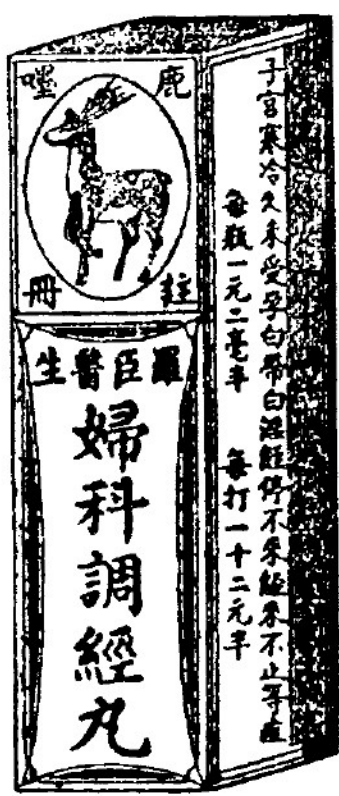 鹿嚜
註冊
羅臣醫生
婦科調經丸
子宮寒冷久未受孕白帶白淫經停不來經來不止等症
每瓶一元二毫半 每打一十二元半